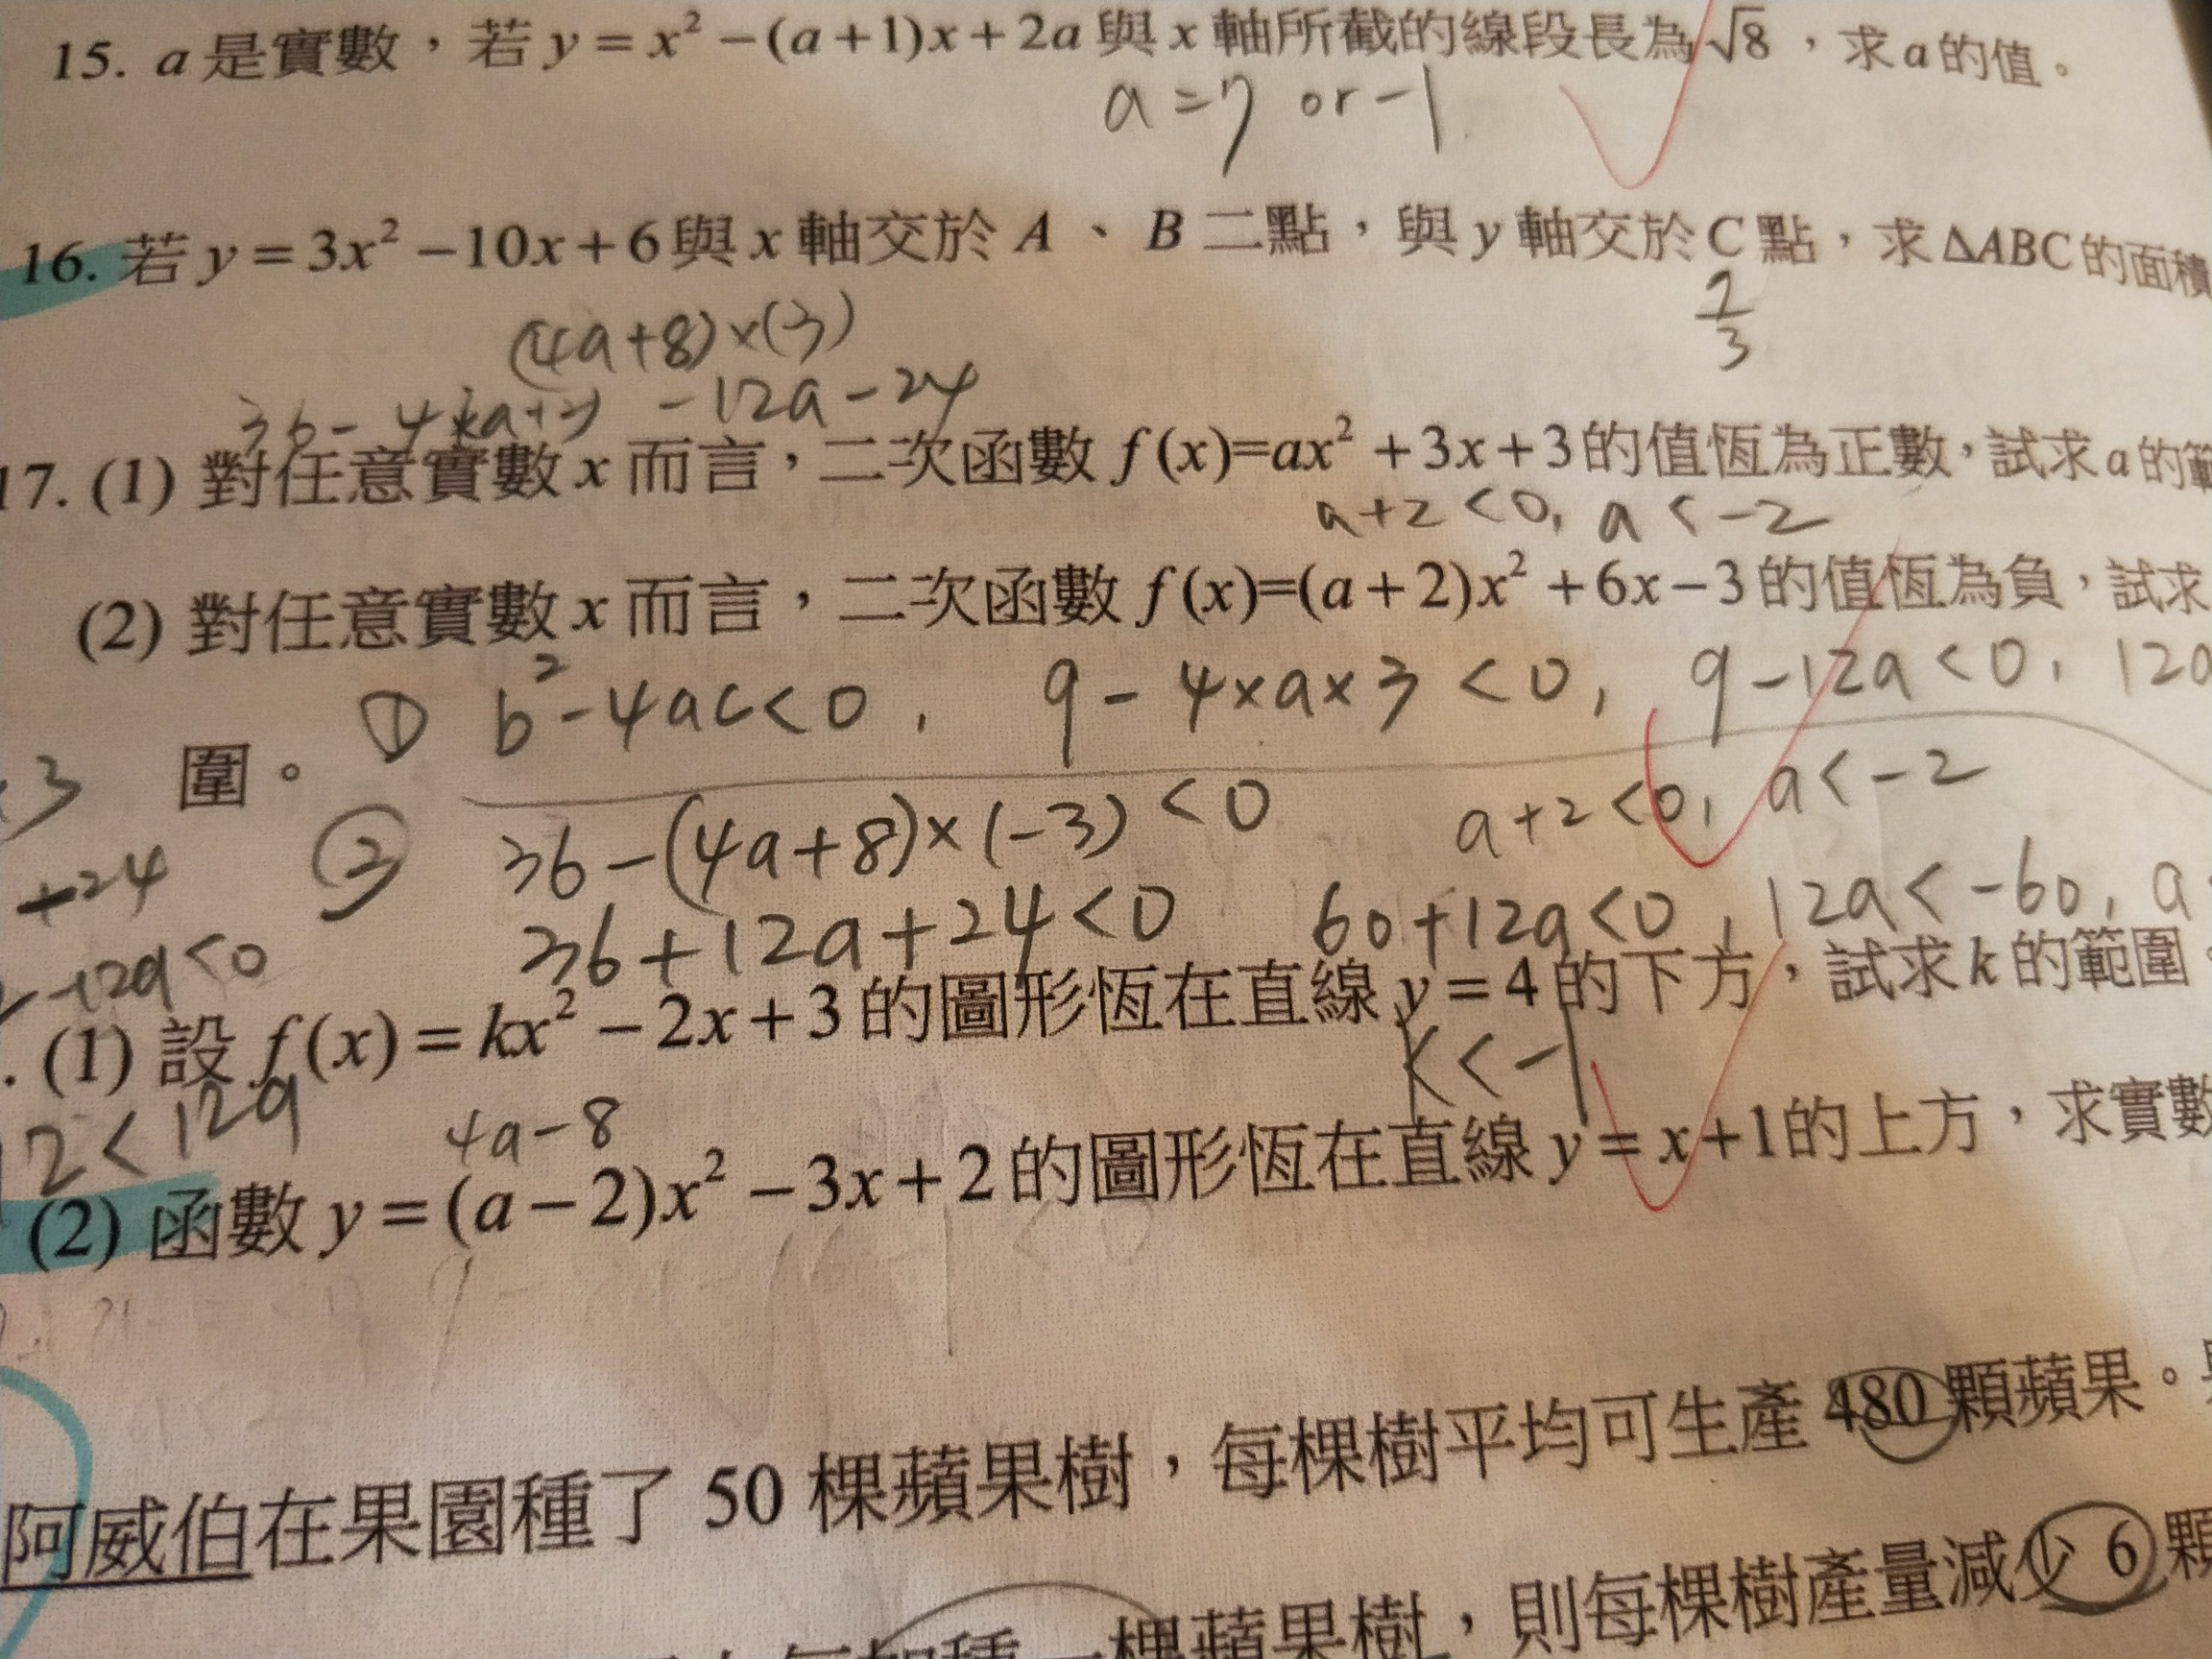 15. a 是實數，若 y = x² − (a+1)x + 2a 與 x 軸所截的線段長為 √8，求 a 的值。
a = 7 or −1
16. 若 y = 3x² − 10x + 6 與 x 軸交於 A、B 二點，與 y 軸交於 C 點，求 ΔABC 的面積
2/3
(4a+8)×(3)
−12a−24
17. (1) 對任意實數 x 而言，二次函數 f(x)=ax² + 3x + 3 的值恆為正數，試求 a 的範
a+2<0, a<−2
(2) 對任意實數 x 而言，二次函數 f(x)=(a + 2)x² + 6x − 3 的值恆為負，試求
① b²−4ac<0, 9−4×a×3<0, 9−12a<0, 12a
圍。
3
② 36−(4a+8)×(−3)<0 a+2<0, a<−2
+24
36+12a+24<0 60+12a<0, 12a<−60, a
−12a<0
. (1) 設 f(x) = kx² − 2x + 3 的圖形恆在直線 y = 4 的下方，試求 k 的範圍。
k<−1
2<12a
4a−8
(2) 函數 y = (a − 2)x² − 3x + 2 的圖形恆在直線 y = x + 1 的上方，求實數
阿威伯在果園種了 50 棵蘋果樹，每棵樹平均可生產 480 顆蘋果。
一棵蘋果樹，則每棵樹產量減少 6 顆